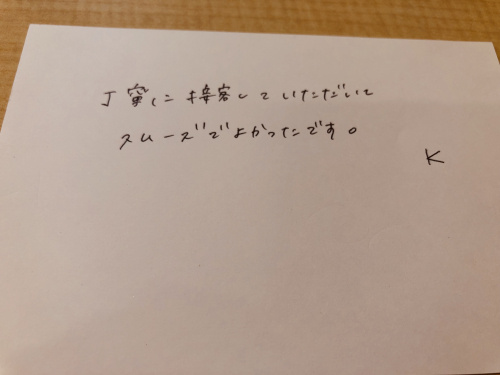 丁寧に接客していただいて
スムーズでよかったです。
K